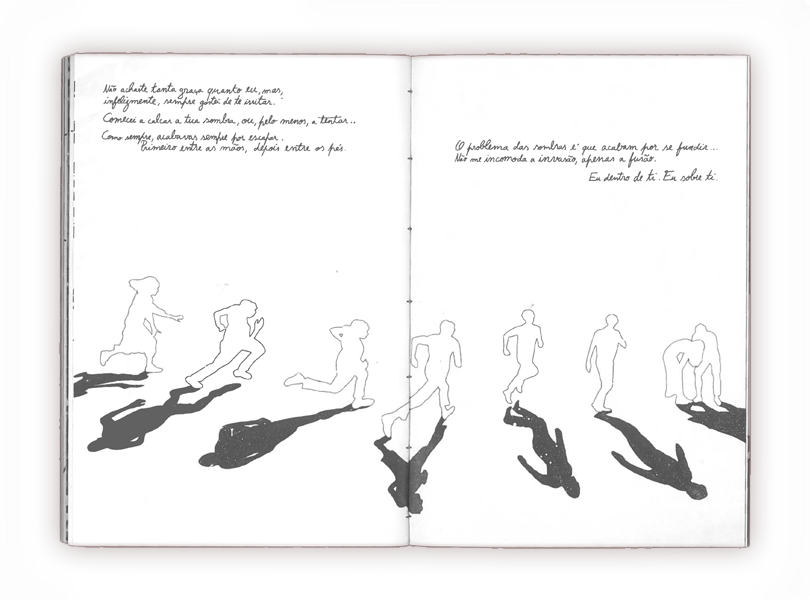 Não achaste tanta graça quanto eu, mas,
infelizmente, sempre gostei de te irritar.
Comecei a calcar a tua sombra, ou, pelo menos, a tentar...
Como sempre, acabavas sempre por escapar.
Primeiro entre as mãos, depois entre os pés.
O problema das sombras é que acabam por se fundir...
Não me incomoda a invasão, apenas a fusão.
Eu dentro de ti. Eu sobre ti.